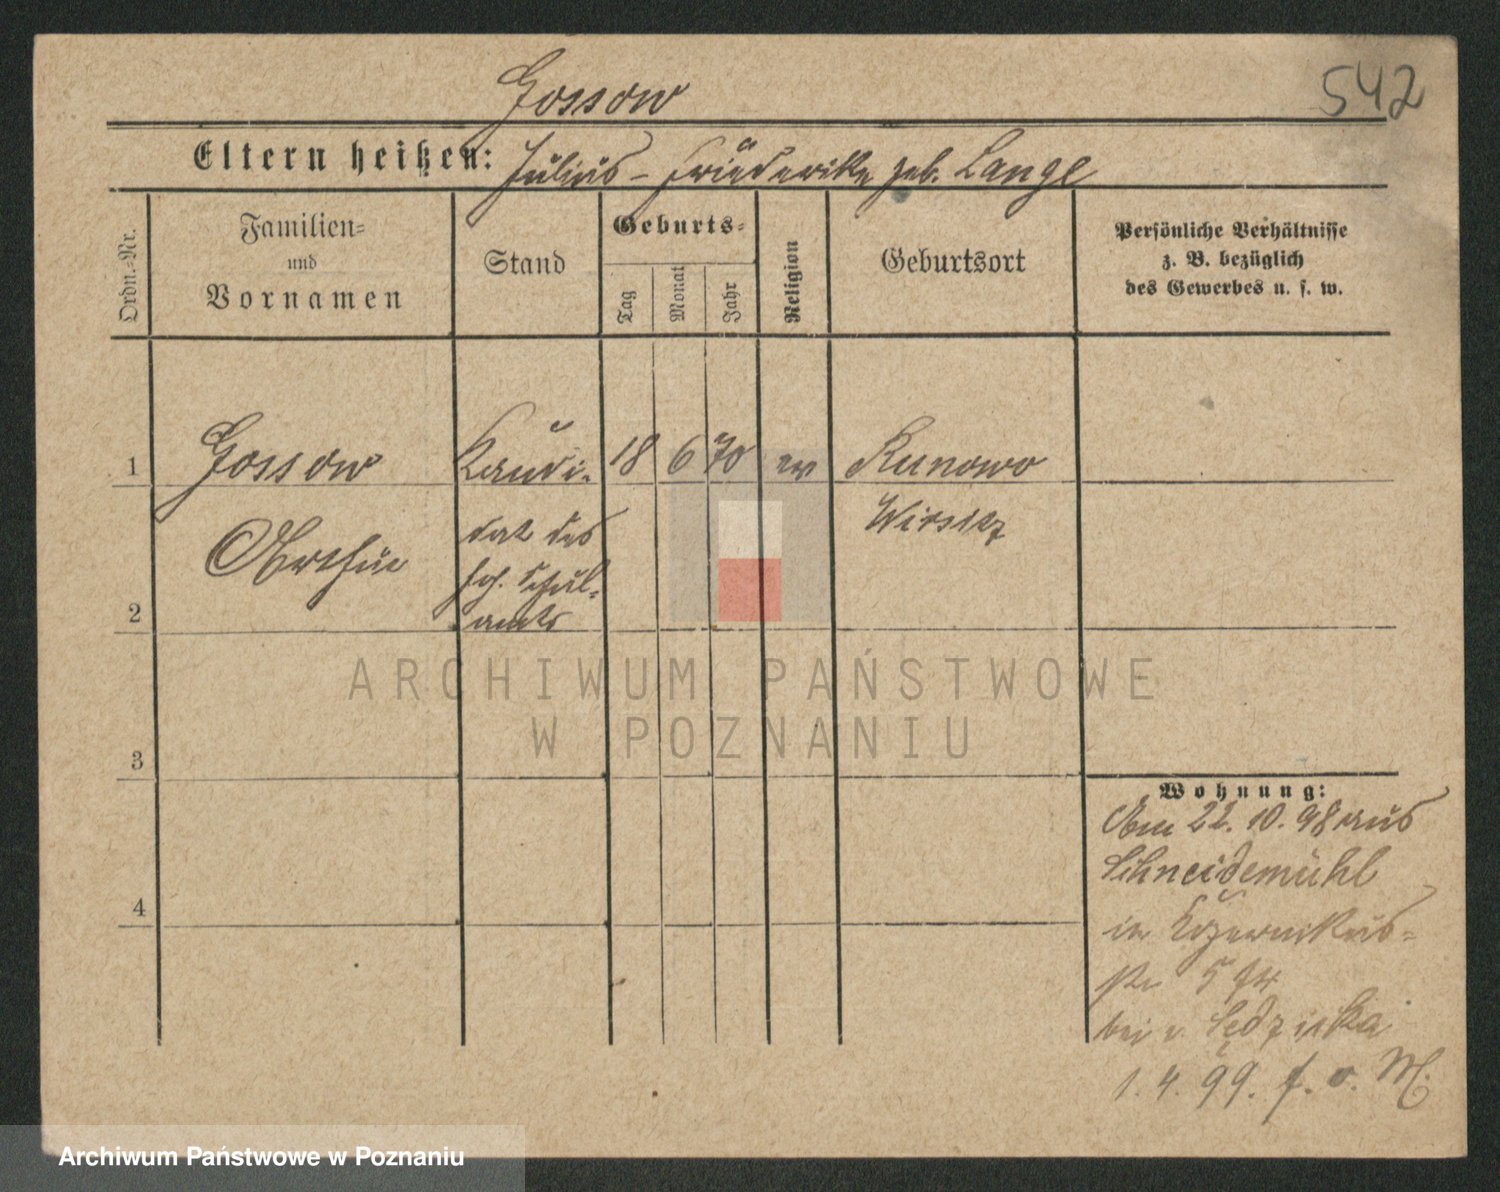 542
Gossow
Eltern heißen: Julius – Friederike geb. Lange
Ordn.-Nr.
Familien- und Vornamen
Stand
Geburts-
Tag
Monat
Jahr
Religion
Geburtsort
Persönliche Verhältnisse
z. B. bezüglich
des Gewerbes u. s. w.
1 Gossow Kandi- 18 6 70 ev Runowo
Arthur dat des Wirsitz
höh. Schul-
2 amts
3
4
Wohnung:
Am 22. 10. 98 aus
Schneidemühl
in
5
bei v.
1. 4. 99. f. v. M.
ARCHIWUM PAŃSTWOWE
W POZNANIU
Archiwum Państwowe w Poznaniu